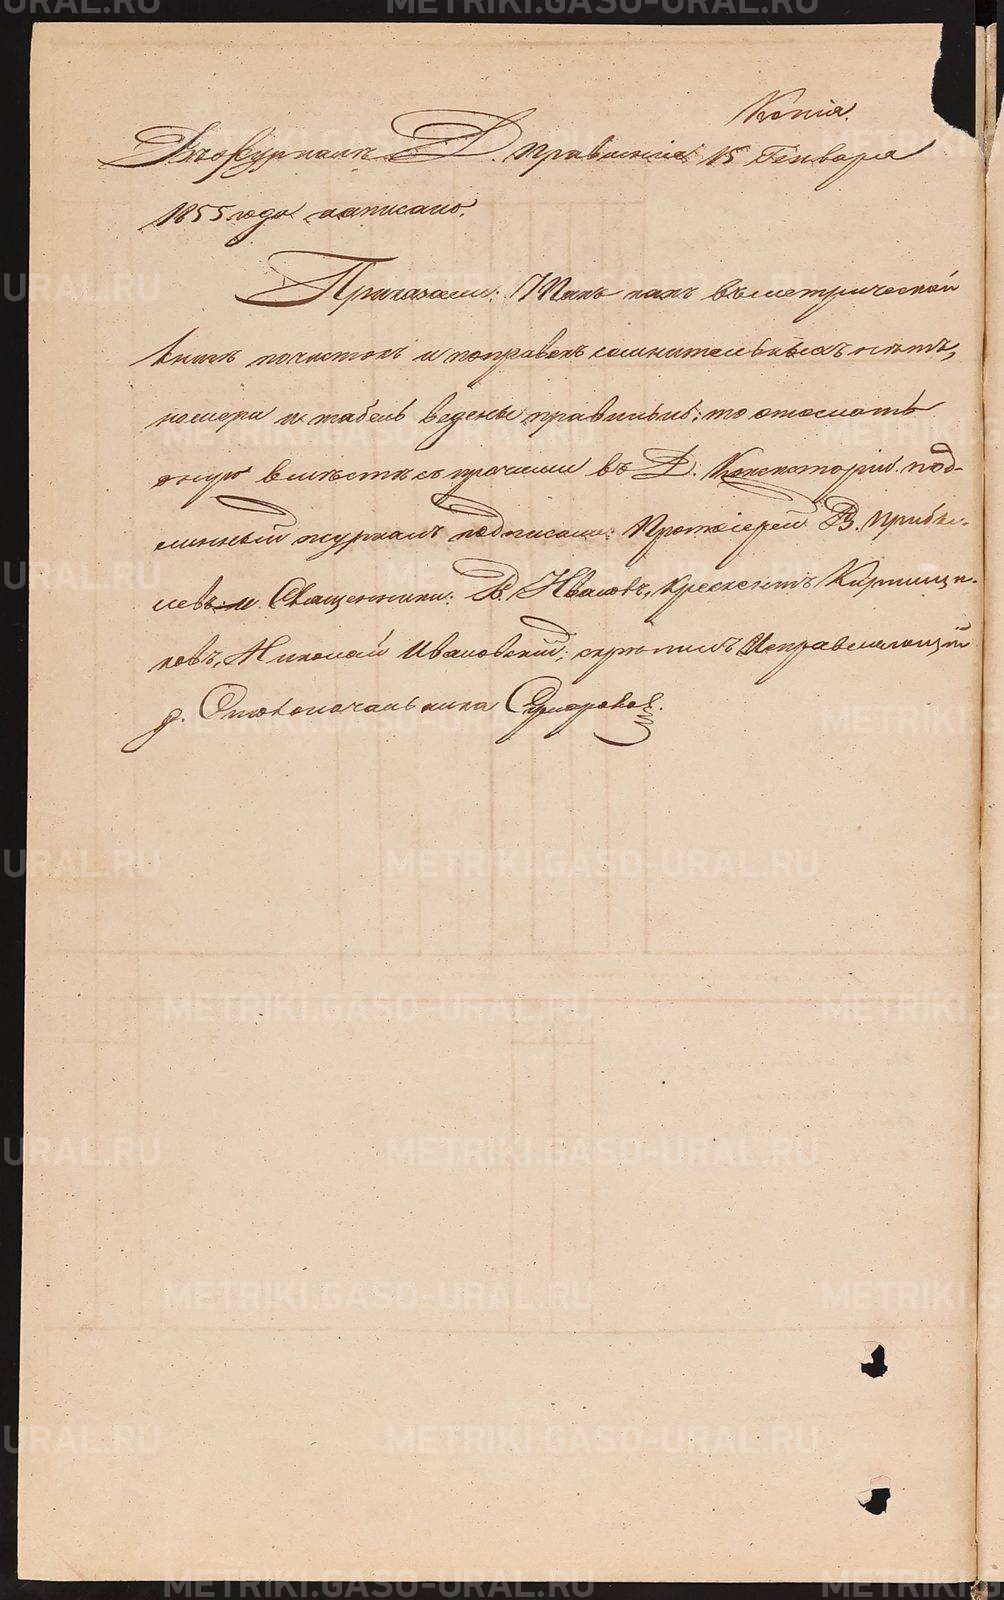 Копія.
Въ журналѣ Д. Правленія 15 Генваря
1855 года написано:
Приказали: Такъ какъ въ метрической
книгѣ почистокъ и поправокъ сомнительныхъ нѣтъ,
номера и табель ведены правильно; то отослать
оную вмѣстѣ съ прочими въ Д. Консисторію. Под-
линный журналъ подписали: Протоіерей В.
и Священники: В. Ивановъ, Крескентъ Кирпищи-
ковъ, Николай Ивановскій; скрѣпилъ Исправляющій
д. Столоначальника
METRIKI.GASO-URAL.RU